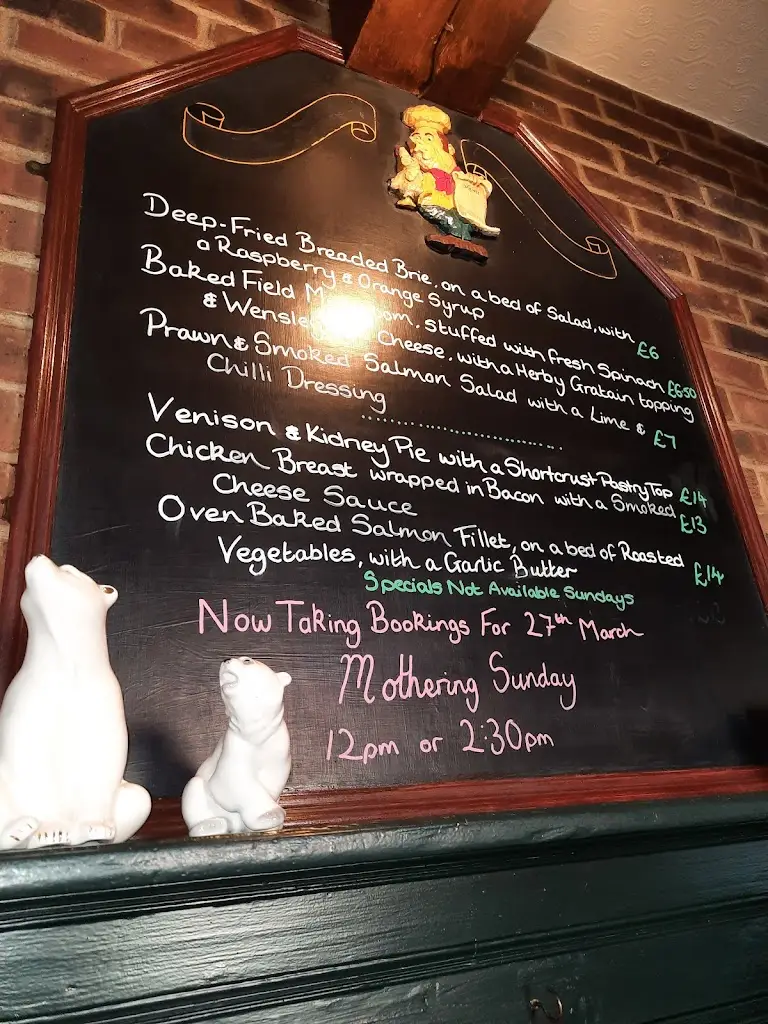 Deep-Fried Breaded Brie, on a bed of Salad, with
a Raspberry & Orange Syrup £6
Baked Field stuffed with fresh Spinach £6.50
& Cheese, with a Herby Gratain topping
Prawn & Smoked Salmon Salad with a Lime &
Chilli Dressing £7
Venison & Kidney Pie with a Shortcrust Pastry Top £14
Chicken Breast wrapped in Bacon with a Smoked £13
Cheese Sauce
Oven Baked Salmon Fillet, on a bed of Roasted
Vegetables, with a Garlic Butter £14
Specials Not Available Sundays
Now Taking Bookings For 27th March
Mothering Sunday
12pm or 2:30pm